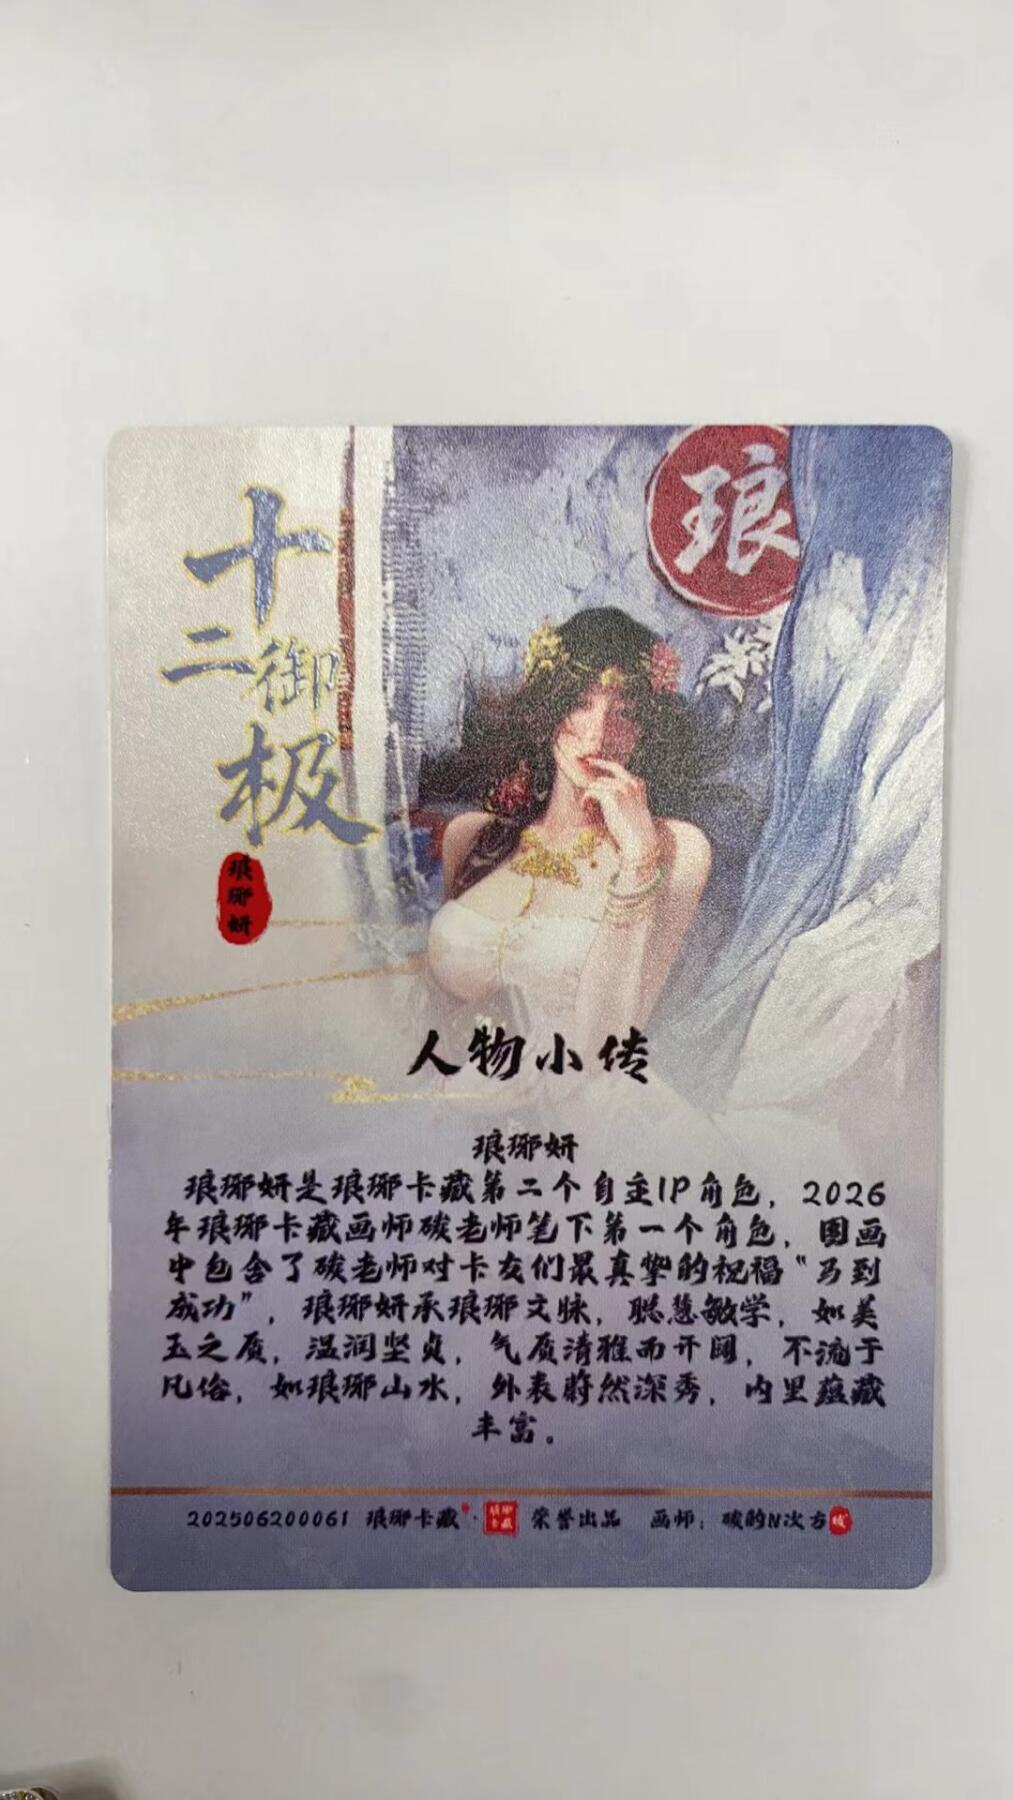 琅
十二御极
琅琊妍
人物小传
琅琊妍
琅琊妍是琅琊卡藏第二个自主IP角色，2026
年琅琊卡藏画师碳老师笔下第一个角色，图画
中包含了碳老师对卡友们最真挚的祝福“马到
成功”，琅琊妍承琅琊文脉，聪慧敏学，如美
玉之质，温润坚贞，气质清雅而开阔，不流于
凡俗，如琅琊山水，外表蔚然深秀，内里蕴藏
丰富。
202506200061 琅琊卡藏· 荣誉出品 画师：碳的N次方